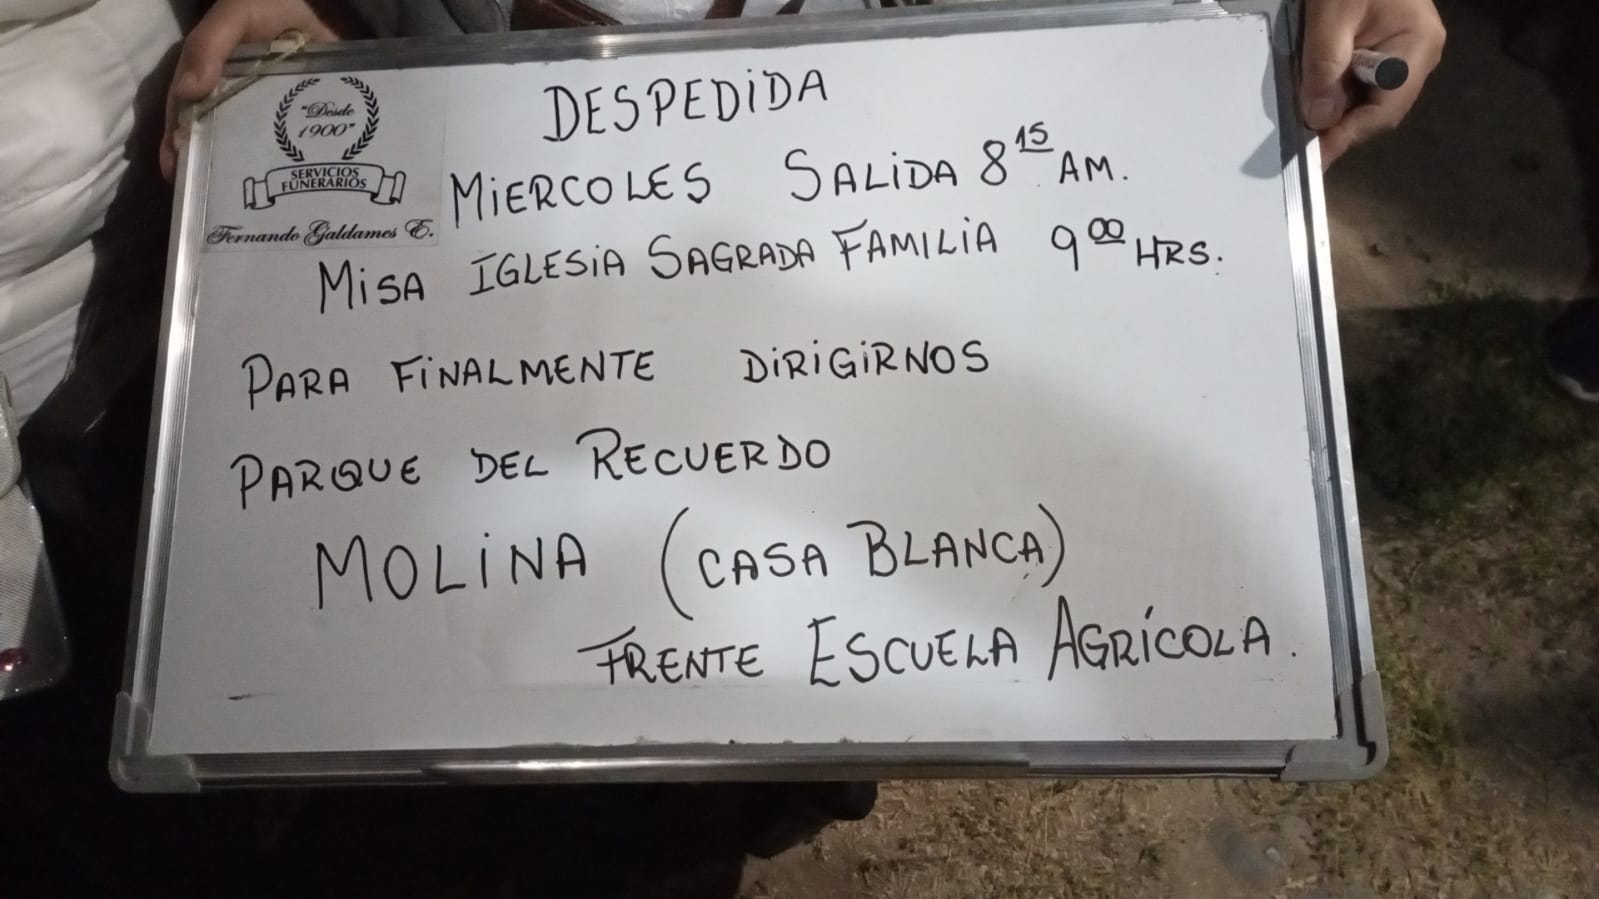 "Desde
1900"
SERVICIOS
FUNERARIOS
Fernando Galdames E.
DESPEDIDA
MIERCOLES SALIDA 8 15 AM.
MISA IGLESIA SAGRADA FAMILIA 9 00 HRS.
PARA FINALMENTE DIRIGIRNOS
PARQUE DEL RECUERDO
MOLINA (CASA BLANCA)
FRENTE ESCUELA AGRÍCOLA.